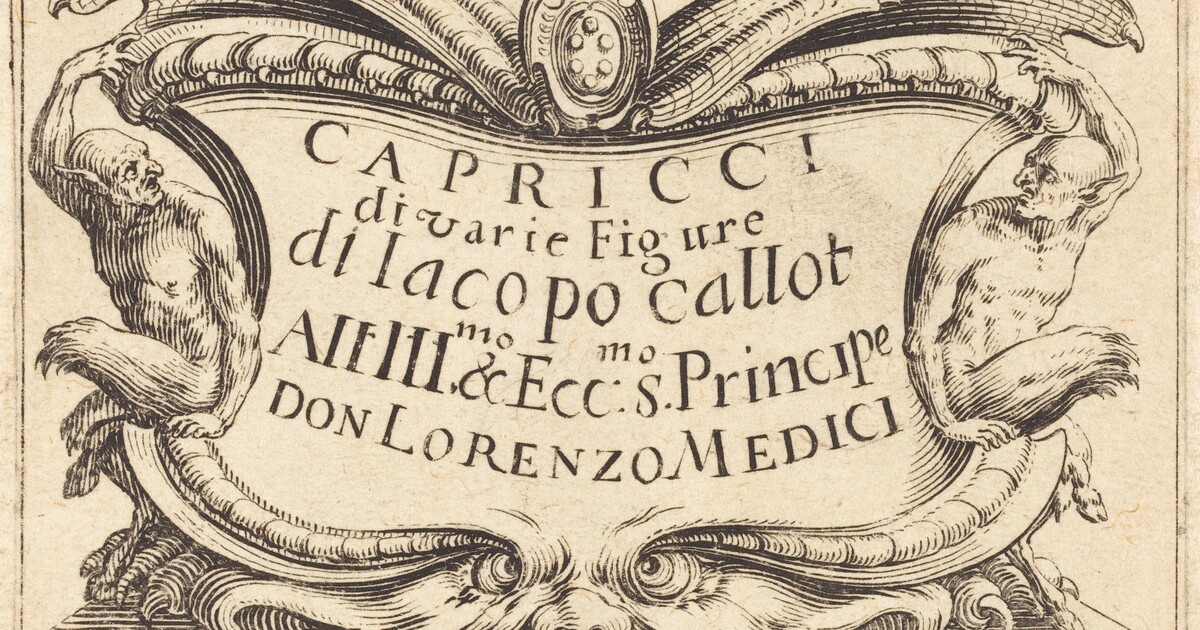 CAPRICCI
di varie Figure
di Iacopo Callot
All'Ill.mo & Ecc:mo s. Principe
DON LORENZO MEDICI